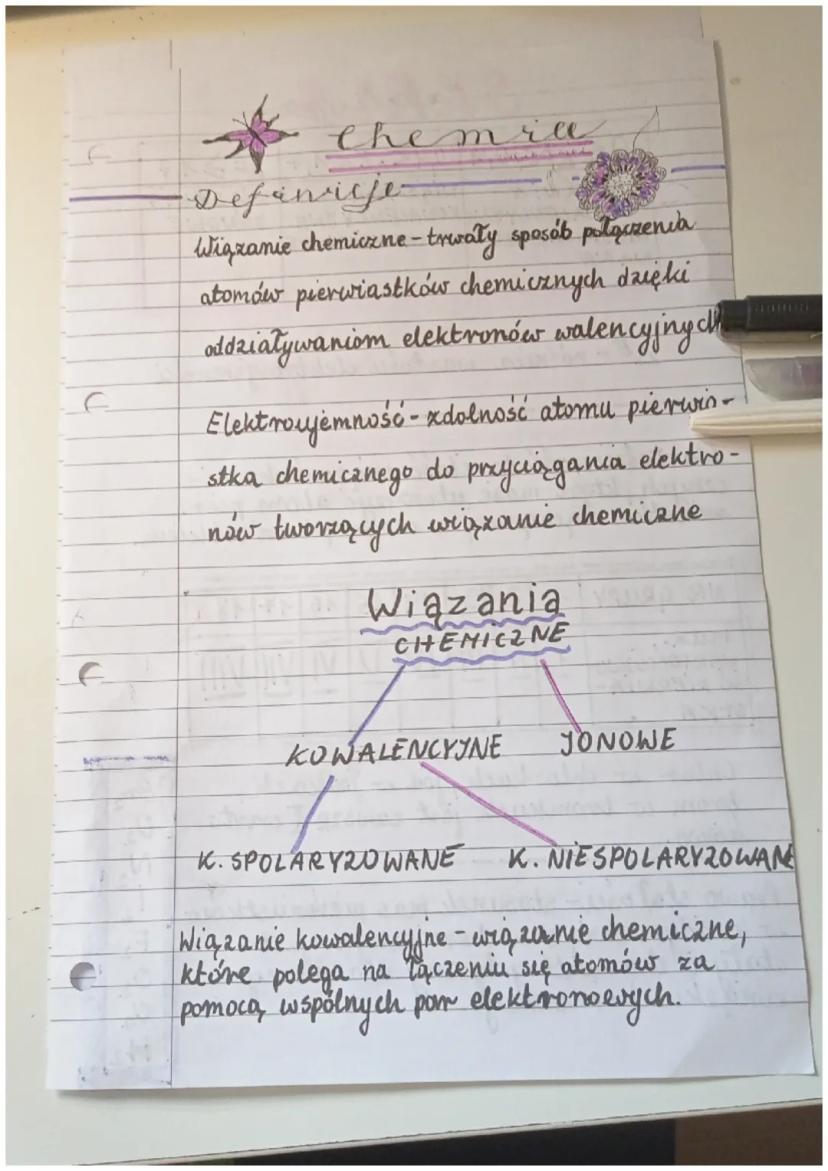 Chemia
Definicje
Wiązanie chemiczne - trwały sposób połączenia
atomów pierwiastków chemicznych dzięki
oddziaływaniom elektronów walencyjnych
Elektroujemność - zdolność atomu pierwia-
stka chemicznego do przyciągania elektro-
nów tworzących wiązanie chemiczne
Wiązania
CHEMICZNE
KOWALENCYJNE JONOWE
K. SPOLARYZOWANE K. NIESPOLARYZOWANE
Wiązanie kowalencyjne - wiązanie chemiczne,
które polega na łączeniu się atomów za
pomocą wspólnych par elektronowych.